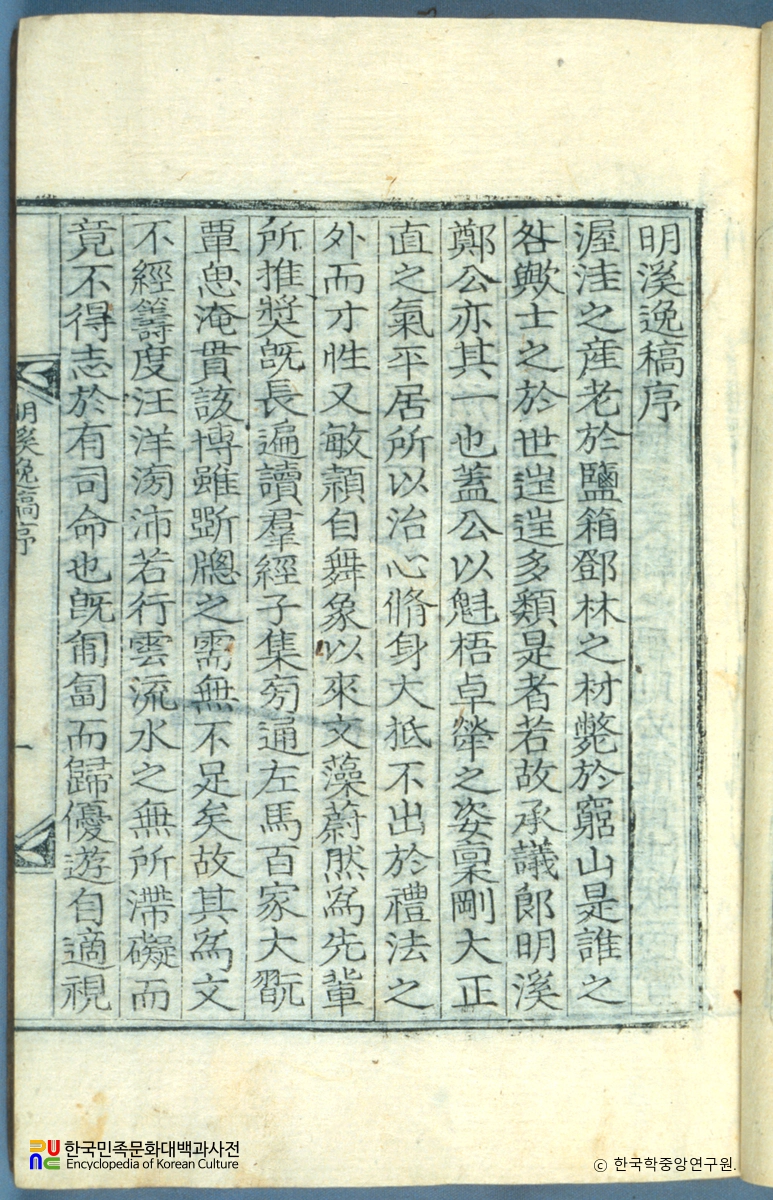 明溪逸稿序
渥洼之産老於鹽箱鄧林之材斃於窮山是誰之
咎歟士之於世迬迬多類是者若故承議郞明溪
鄭公亦其一也蓋公以魁梧卓犖之姿稟剛大正
直之氣平居所以治心脩身大抵不出於禮法之
外而才性又敏穎自舞象以來文藻蔚然爲先輩
所推奬旣長遍讀羣經子集旁通左馬百家大翫
覃思淹貫該博雖斲牕之需無不足矣故其爲文
不經籌度汪洋滂沛若行雲流水之無所滯礙而
竟不得志於有司命也旣而匐而歸優遊自適視
明溪逸稿序
一
한국민족문화대백과사전
Encyclopedia of Korean Culture
© 한국학중앙연구원.